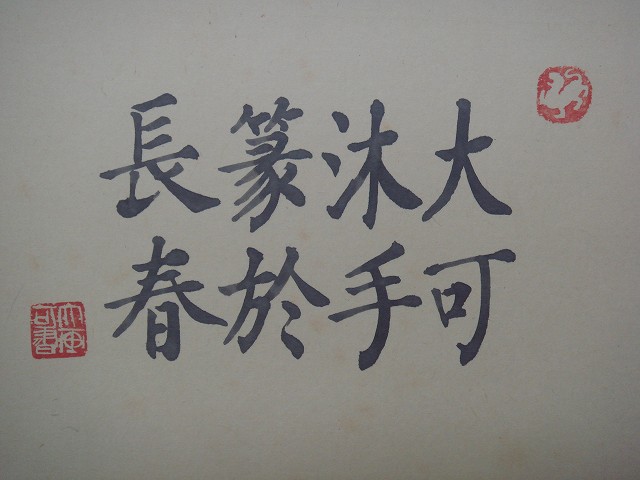 大可
沐手
篆於
長春